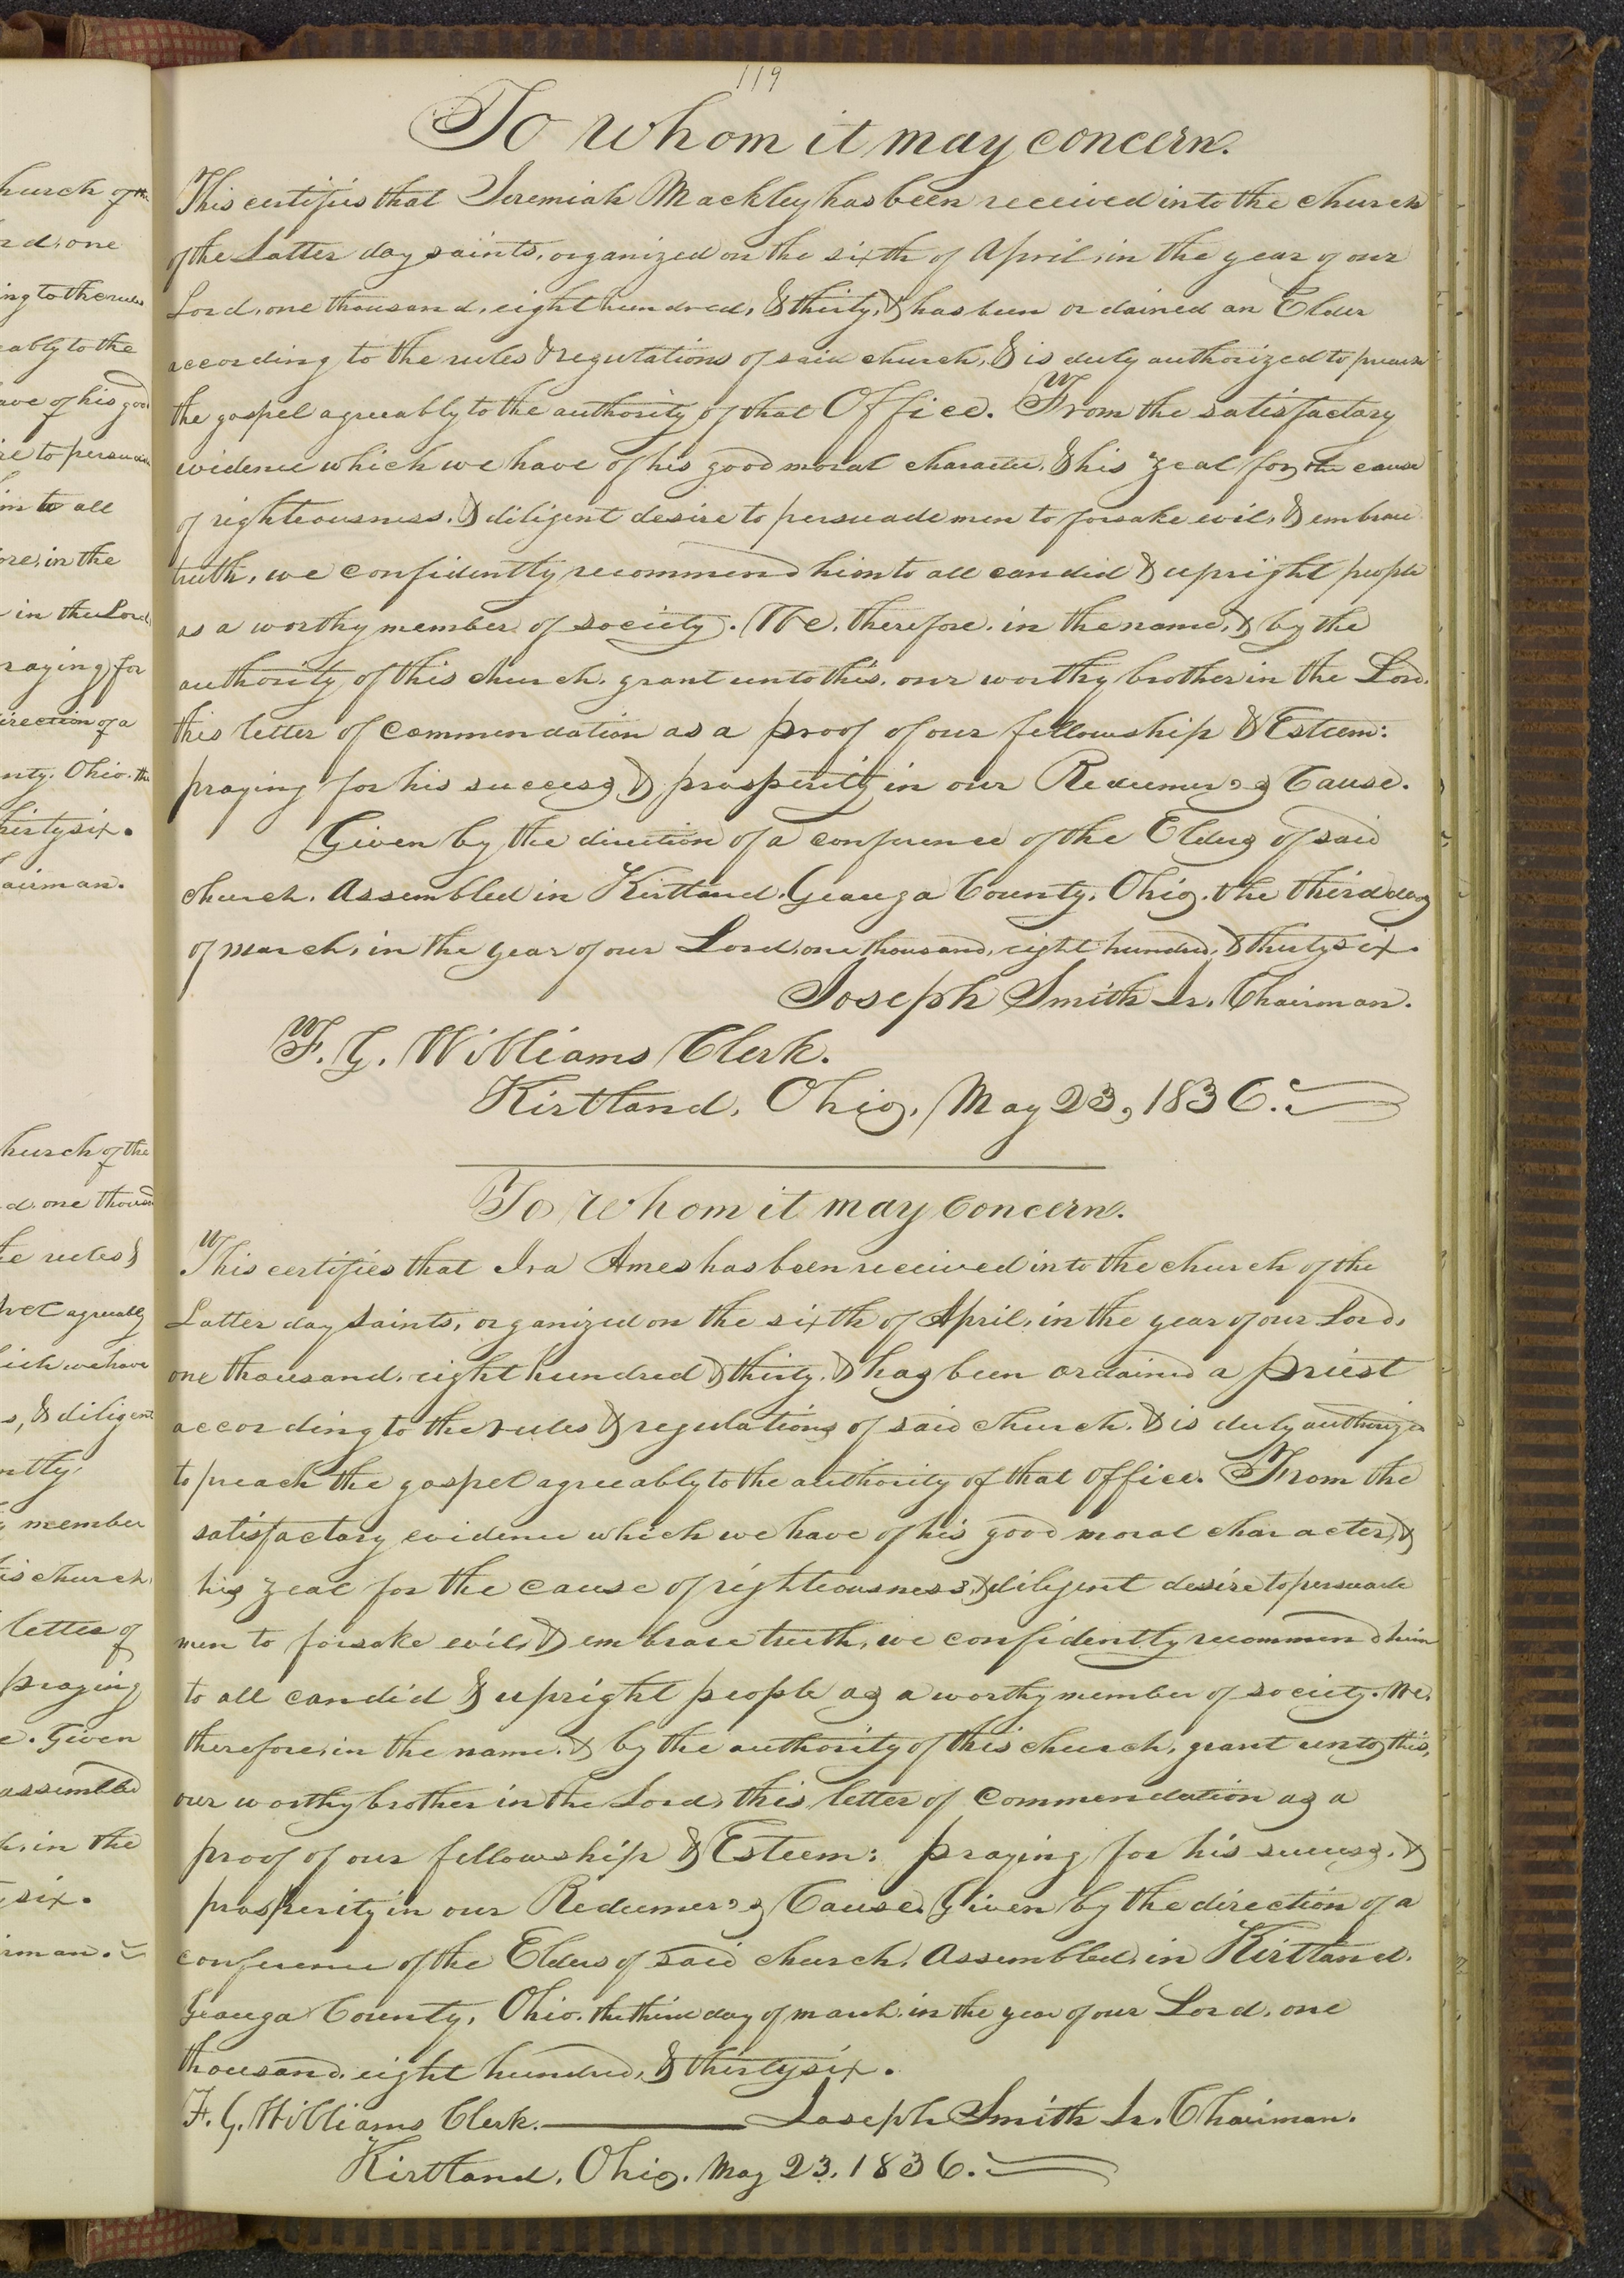 hurch of the
rd, one
ing to the rules
eably to the
ave of his good
re to persuade
im to all
ore, in the
in the Lord,
raying for
irection of a
nty, Ohio, the
hirtysix.
airman.
hurch of the
d, one thousand
he rules &
pel agreeably
hich we have
s, & diligent
ntly
y member
is church,
letter of
praying
e. Given
assembled
h, in the
ysix.
irman.
119
To whom it may concern.
This certifies that Jeremiah Mackley has been received into the church
of the Latter day saints, organized on the sixth of April, in the year of our
Lord, one thousand, eight hundred, & thirty, & has been ordained an Elder
according to the rules & regulations of said church, & is duly authorized to preach
the gospel agreeably to the authority of that Office. From the satisfactory
evidence which we have of his good moral character, & his zeal for the cause
of righteousness, & diligent desire to persuade men to forsake evil, & embrace
truth, we confidently recommend him to all candid & upright people
as a worthy member of society. We, therefore, in the name, & by the
authority of this church, grant unto this, our worthy brother in the Lord,
this letter of commendation as a proof of our fellowship & Esteem:
praying for his success, & prosperity in our Redeemer's Cause.
Given by the direction of a conference of the Elders of said
church, Assembled in Kirtland, Geauga County, Ohio, the third day
of march, in the year of our Lord, one thousand, eight hundred, & thirtysix.
Joseph Smith Jr. Chairman.
F. G. Williams Clerk.
Kirtland, Ohio, May 23, 1836.
To whom it may Concern.
This certifies that Ira Ames has been received into the church of the
Latter day Saints, organized on the sixth of April, in the year of our Lord,
one thousand, eight hundred & thirty, & has been ordained a priest
according to the rules & regulations of said church, & is duly authorized
to preach the gospel agreeably to the authority of that office. From the
satisfactory evidence which we have of his good moral character, &
his zeal for the cause of righteousness, & diligent desire to persuade
men to forsake evil, & embrace truth, we confidently recommend him
to all candid & upright people as a worthy member of society. We,
therefore, in the name, & by the authority of this church, grant unto this,
our worthy brother in the Lord, this letter of Commendation as a
proof of our fellowship & Esteem: praying for his success, &
prosperity in our Redeemer's Cause. Given by the direction of a
conference of the Elders of said church, Assembled, in Kirtland,
Geauga County, Ohio, the third day of march, in the year of our Lord, one
thousand, eight hundred, & thirtysix.
F. G. Williams Clerk. Joseph Smith Jr. Chairman.
Kirtland, Ohio, May 23, 1836.